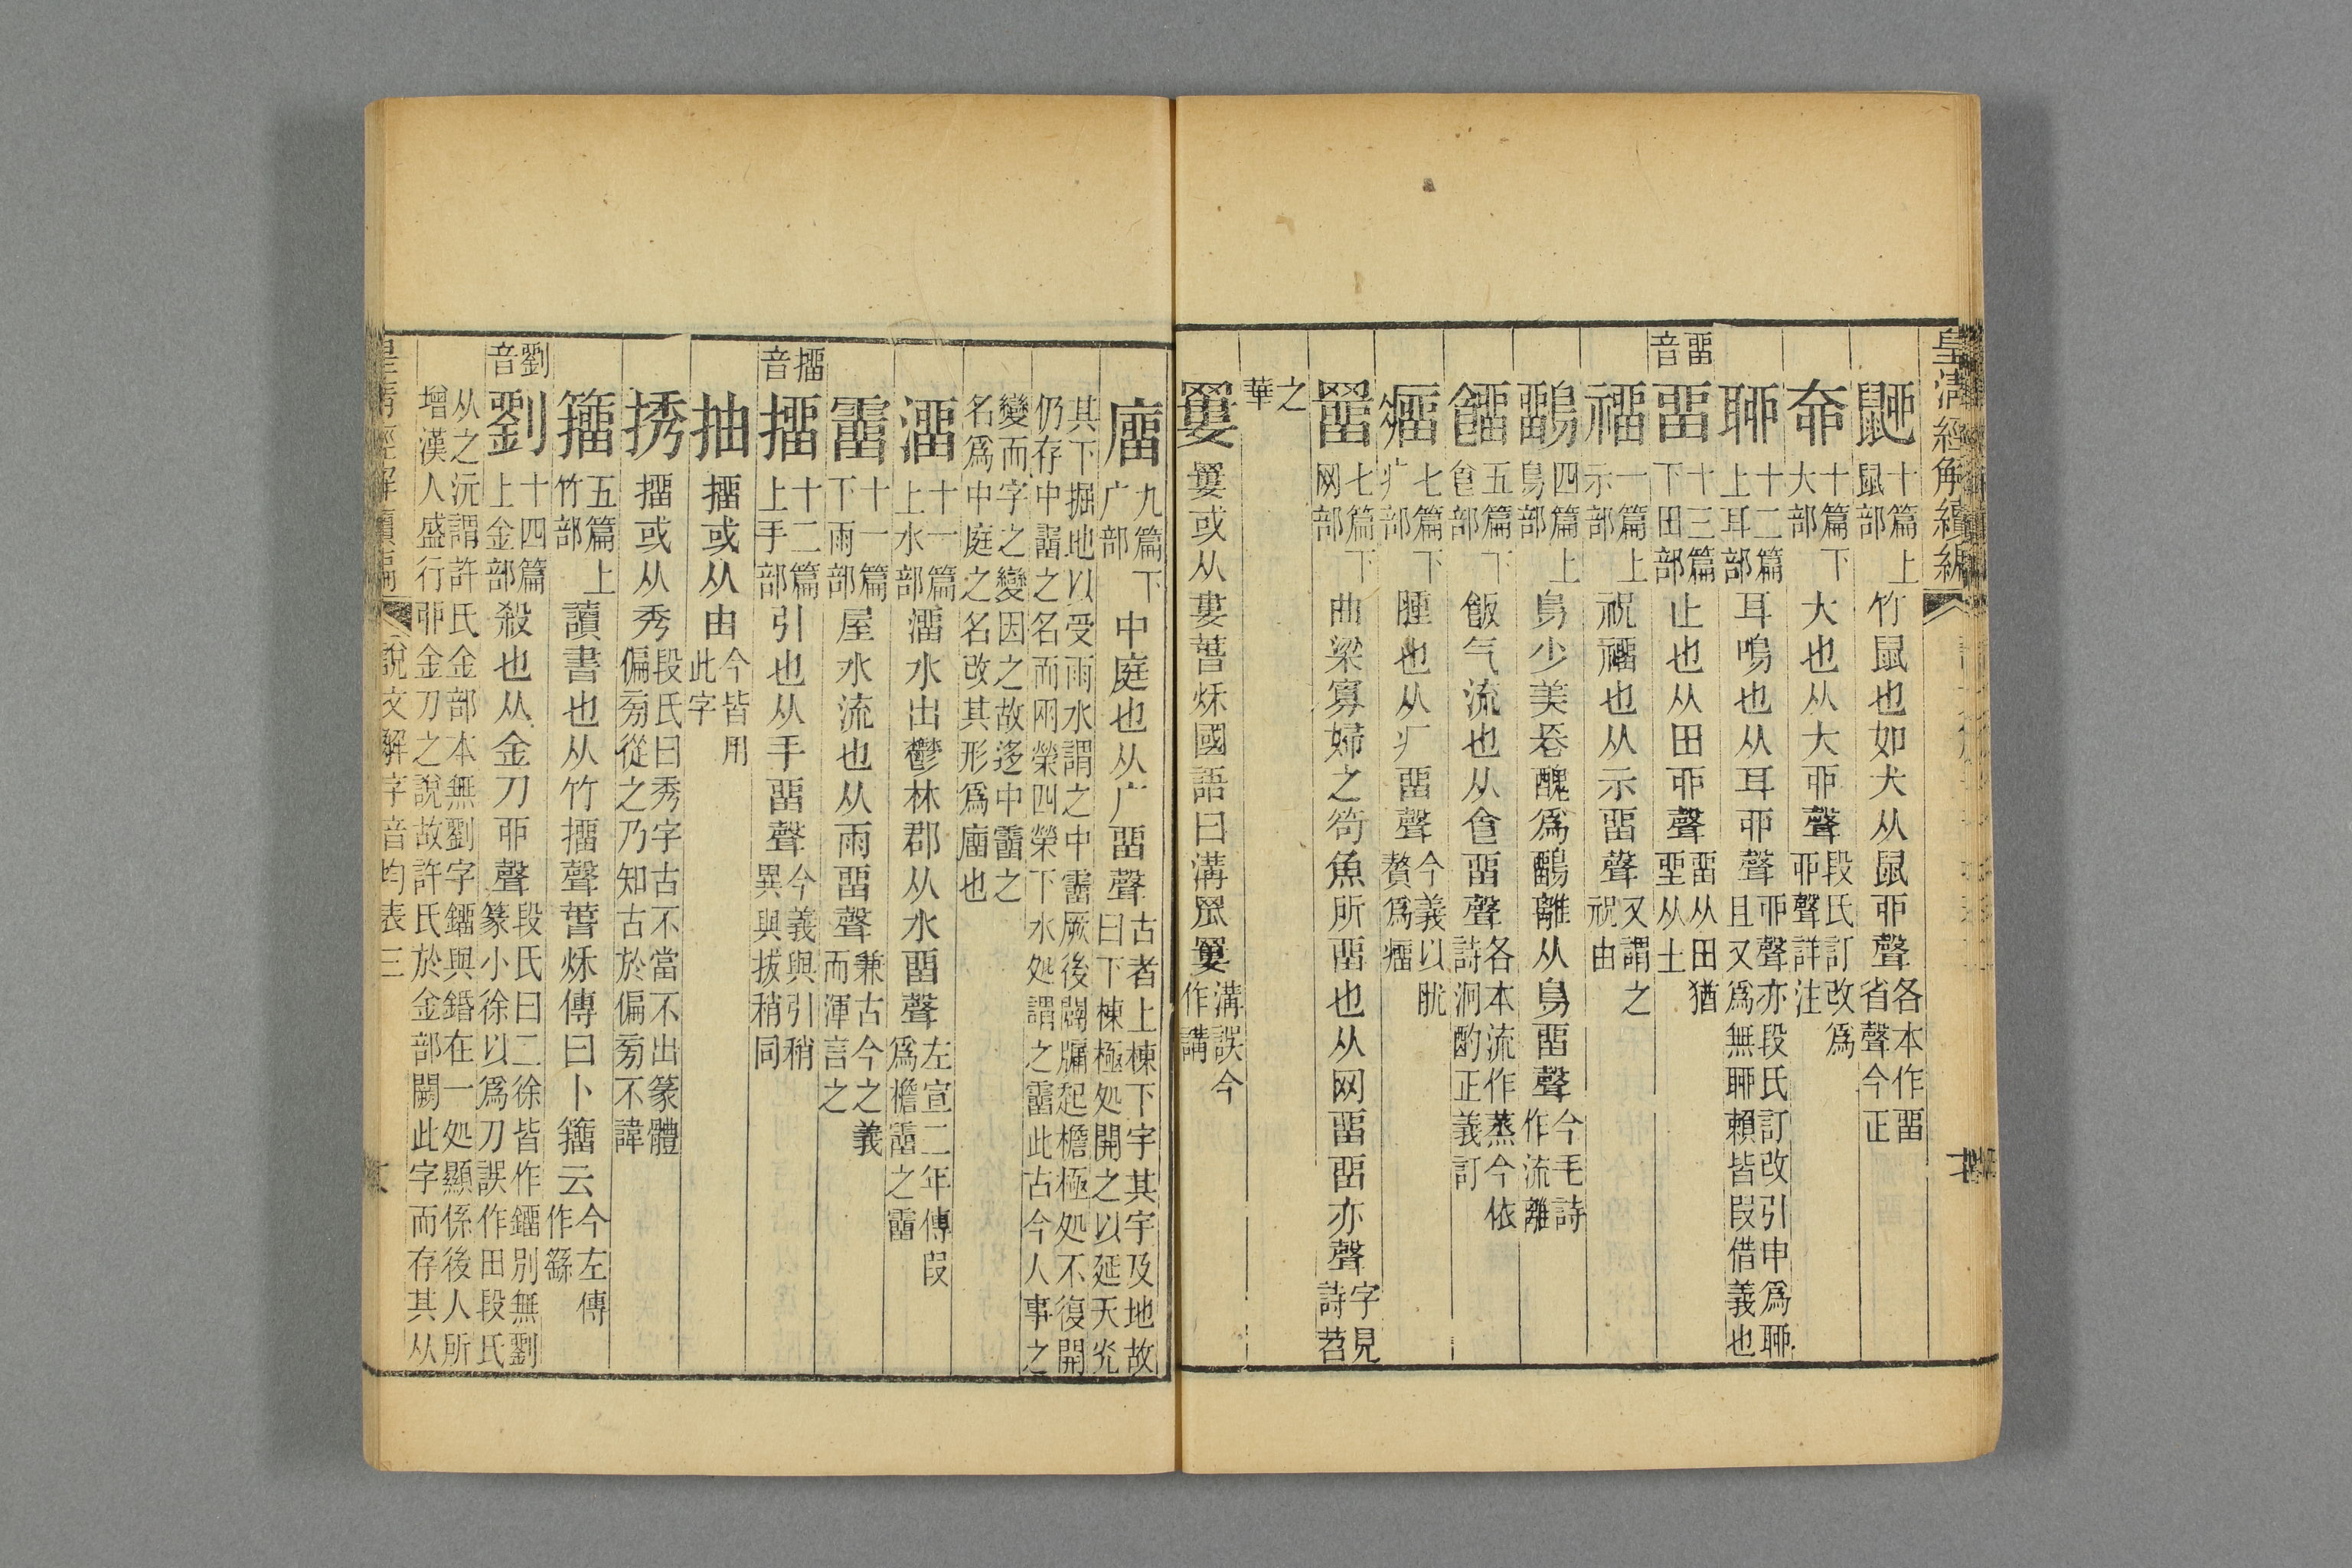 皇清經解續編
十篇上鼠部 竹鼠也如犬从鼠丣聲 各本作畱省聲今正
奅 十篇下大部 大也从大丣聲 段氏訂改爲丣聲詳注
聊 十二篇上耳部 耳鳴也从耳丣聲 丣聲亦段氏訂改引申爲聊且又爲無聊賴皆叚借義也
畱音
畱 十三篇下田部 止也从田丣聲 畱从田猶坙从土
𥛅 一篇上示部 祝𥛅也从示畱聲 又謂之祝由
鶹 四篇上鳥部 鳥少美長醜爲鶹離从鳥畱聲 今毛詩作流離
餾 五篇下食部 飯气流也从食畱聲 各本流作蒸今依詩泂酌正義訂
瘤 七篇下疒部 腫也从疒畱聲 今義以肬贅爲瘤
罶 七篇下网部 曲梁寡婦之笱魚所畱也从网畱畱亦聲 字見詩苕
之華
𦌁 𦌁或从婁萅秌國語曰溝罛𦌁 溝誤今作講
廇 九篇下广部 中庭也从广畱聲 古者上棟下宇其宇及地故曰下棟極処開之以延天光
其下掘地以受雨水謂之中霤厥後闢牖起檐極処不復開仍存中霤之名而网榮四榮下水処謂之霤此古今人事之
變而字之變因之故迻中霤之名爲中庭之名改其形爲廇也
溜 十一篇上水部 溜水出鬱林郡从水畱聲 左宣二年傳叚爲檐霤之霤
霤 十一篇下雨部 屋水流也从雨畱聲 兼古今之義而渾言之
㩅音
㩅 十二篇上手部 引也从手畱聲 今義與引稍異與拔稍同
抽 㩅或从由 今皆用此字
㧱 㩅或从秀 段氏曰秀字古不當不出篆體偏㫄從之乃知古於偏㫄不諱
籀 五篇上竹部 讀書也从竹㩅聲萅秌傳曰卜籀云 今左傳作繇
劉音
劉 十四篇上金部 殺也从金刀丣聲 段氏曰二徐皆作鎦別無劉篆小徐以爲刀誤作田段氏
从之沅謂許氏金部本無劉字鎦與鍲在一処顯係後人所增漢人盛行丣金刀之說故許氏於金部闕此字而存其从
皇清經解續編 說文解字音均表三